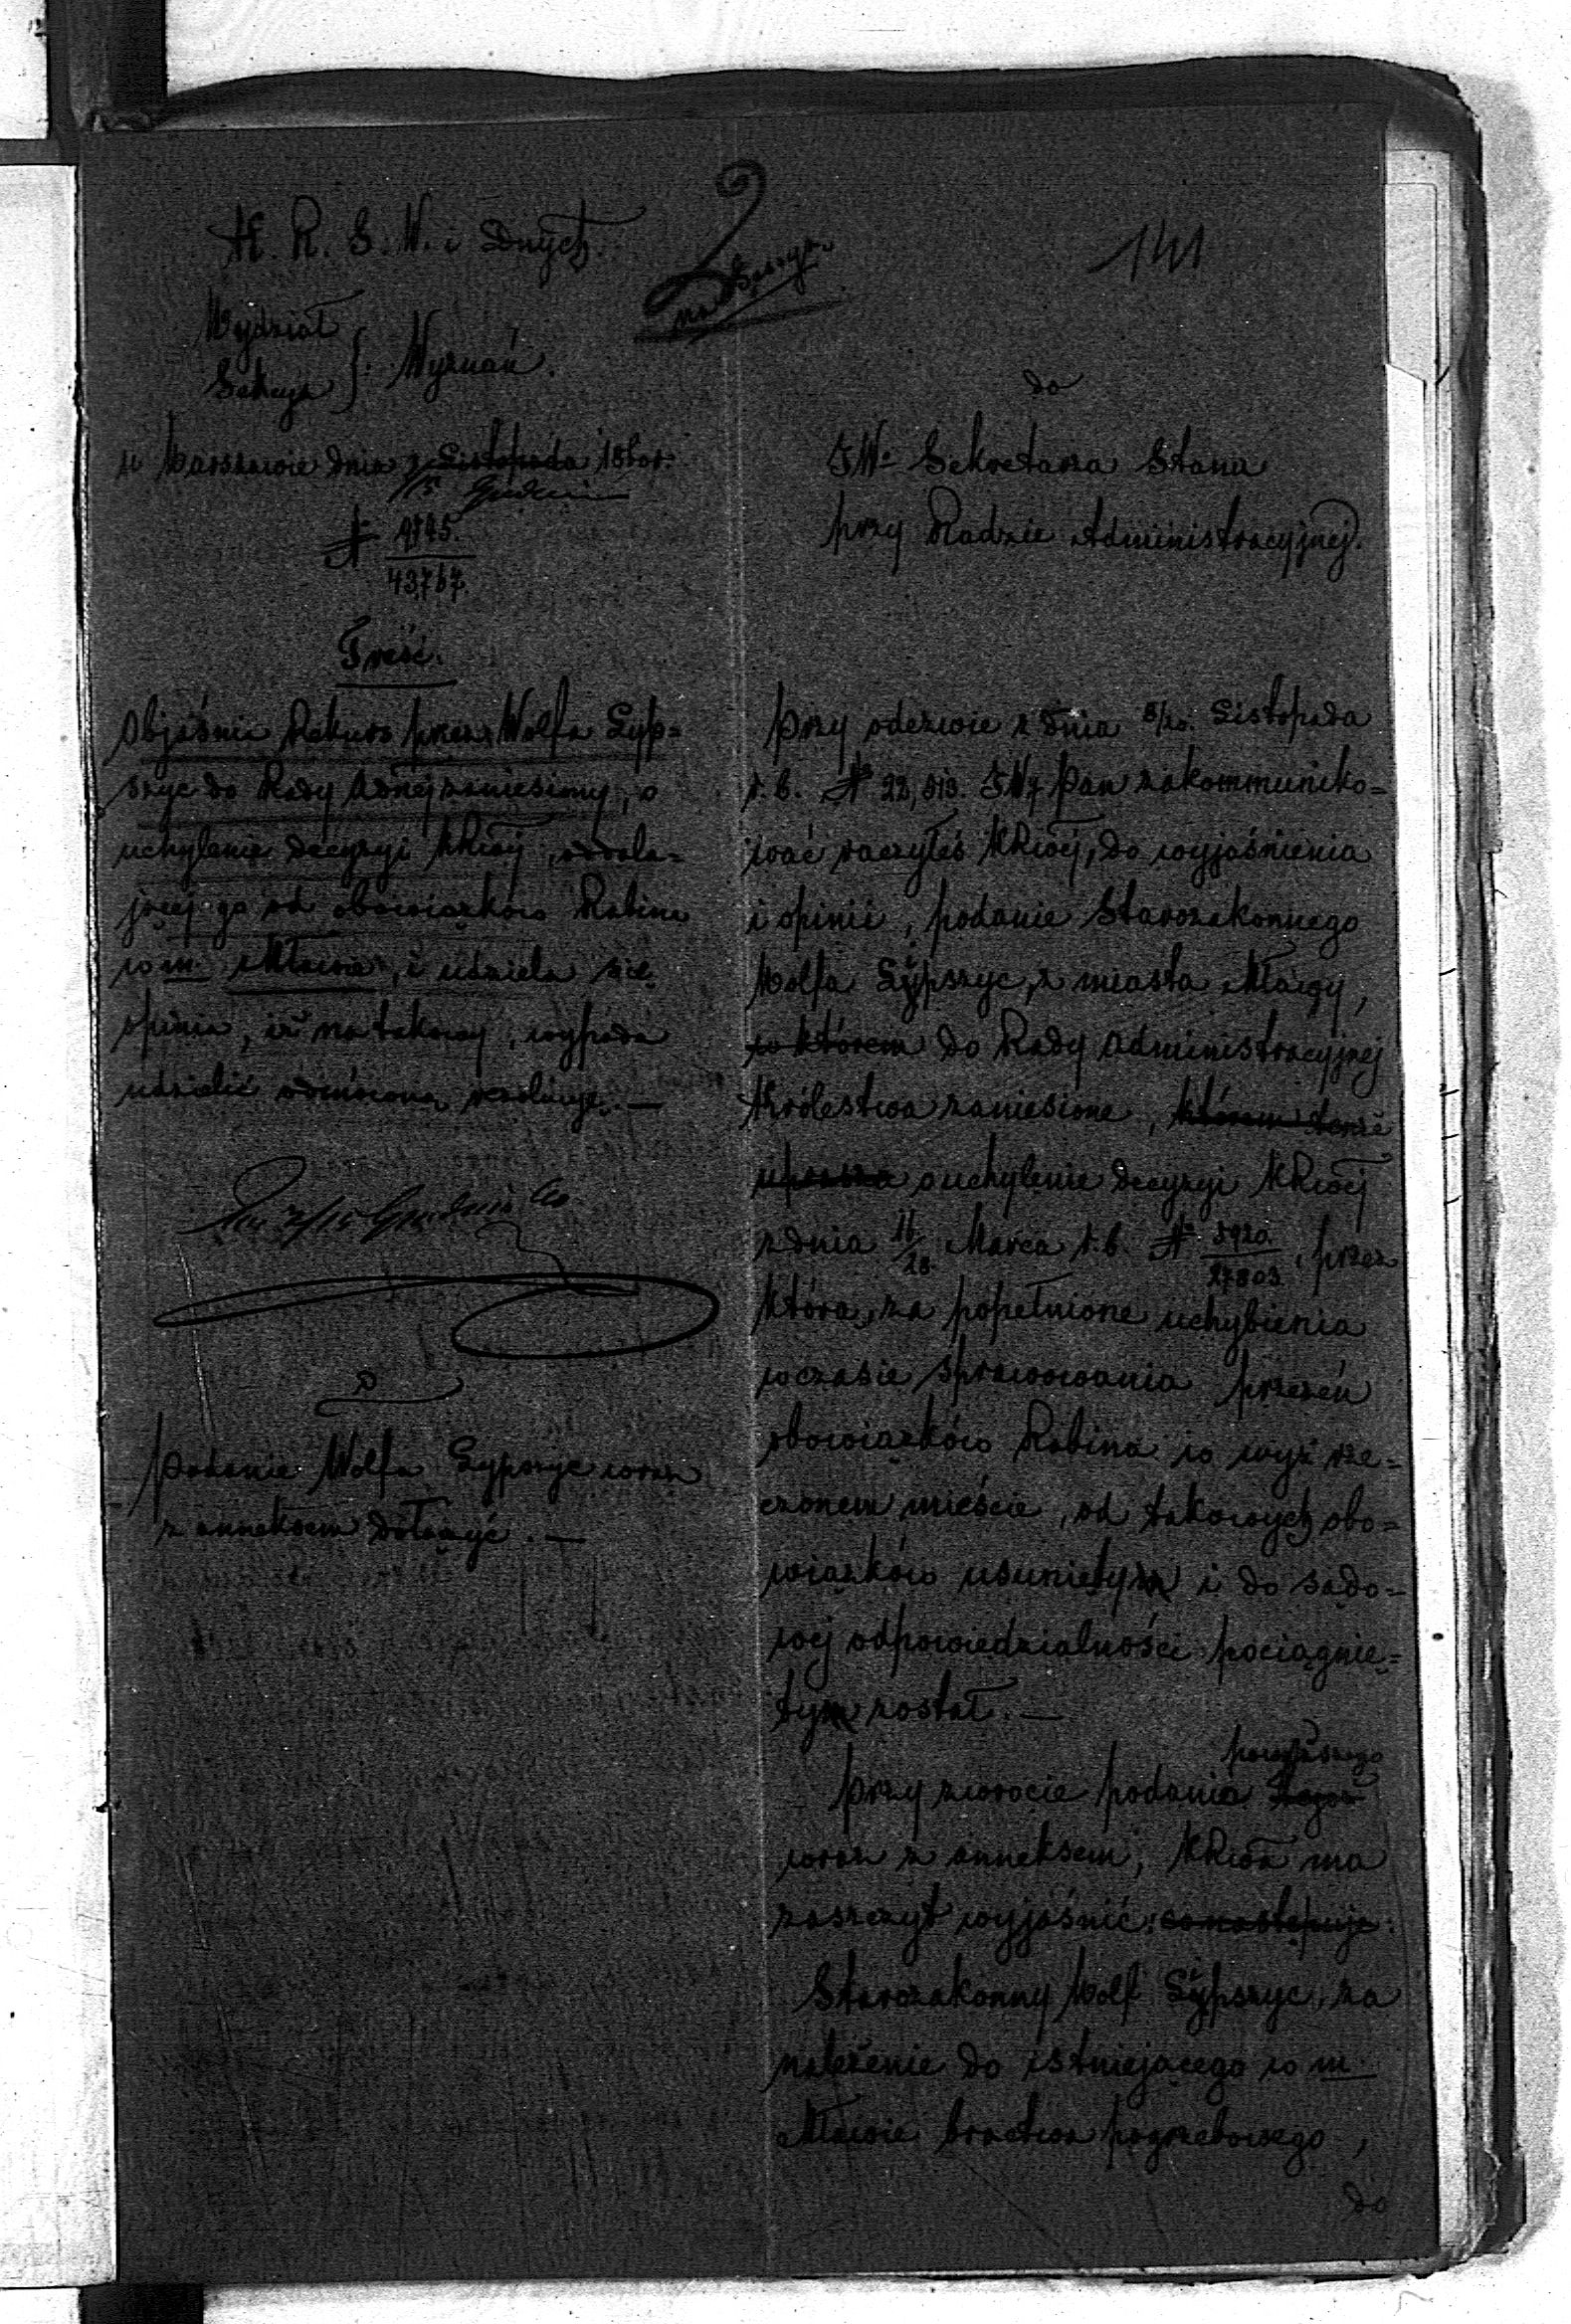 K. R. S. W. i Dnych.
141
Wydział
Sekcya } Wyznań.
w Warszawie dnia 3 Listopada 1860 r.
3/15 Grudnia
N 9795.
43,767.
Treść.
Objaśnia Rekurs przez Wolfa Lyp=
szyc do Rady Adnej zaniesiony, o
uchylenie decyzyi KRwej, oddala=
jącej go od obowiązków Rabina
w m. Mławie, i udziela się
opinia, iż na takowy, wypada
udzielić odmowną rezolucyę. —
Podanie Wolfa Lypszyc wraz
z anneksem dołączyć. —
do
JWo Sekretarza Stanu
przy Radzie Administracyjnej.
Przy odezwie z dnia 8/20. Listopada
r. b. N 22,513. JWy Pan zakommuniko=
wać raczyłeś KRwej, do wyjaśnienia
i opinii, podanie Starozakonnego
Wolfa Lypszyc, z miasta Mławy,
w którem do Rady Administracyjnej
Królestwa zaniesione, którem tenże
uprasza o uchylenie decyzyi KRwej
z dnia 16/28 Marca r. b. N 5920./27803. przez
którą, za popełnione uchybienia
w czasie sprawowania przezeń
obowiązków Rabina w wyż rze=
czonem mieście, od takowych obo=
wiązków usuniętym i do sądo=
wej odpowiedzialności pociągnię=
tym został. —
powyższego
Przy zwrocie podania tegoż
wraz z anneksem, KRwa ma
zaszczyt wyjaśnić: co następuje:
Starozakonny Wolf Lypszyc, za
należenie do istniejącego w m.
Mławie bractwa pogrzebowego,
do